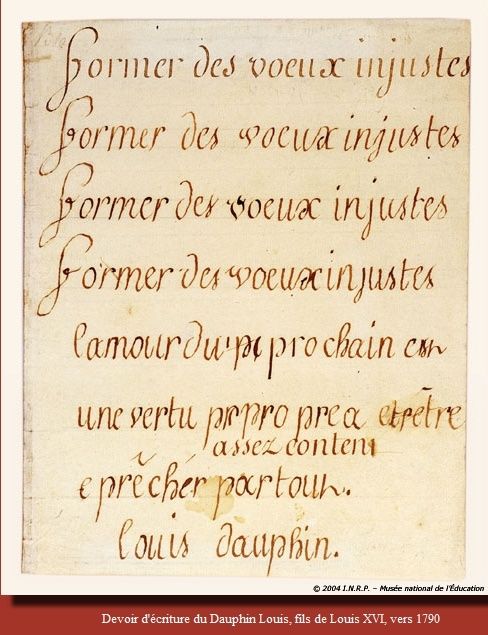 Former des voeux injustes
Former des voeux injustes
Former des voeux injustes
Former des voeux injustes
lamour du prochain
une vertu propre a etrêtre
assez content
e prêcher partout.
louis dauphin.
© 2004 I.N.R.P. – Musée national de l'Éducation
Devoir d'écriture du Dauphin Louis, fils de Louis XVI, vers 1790